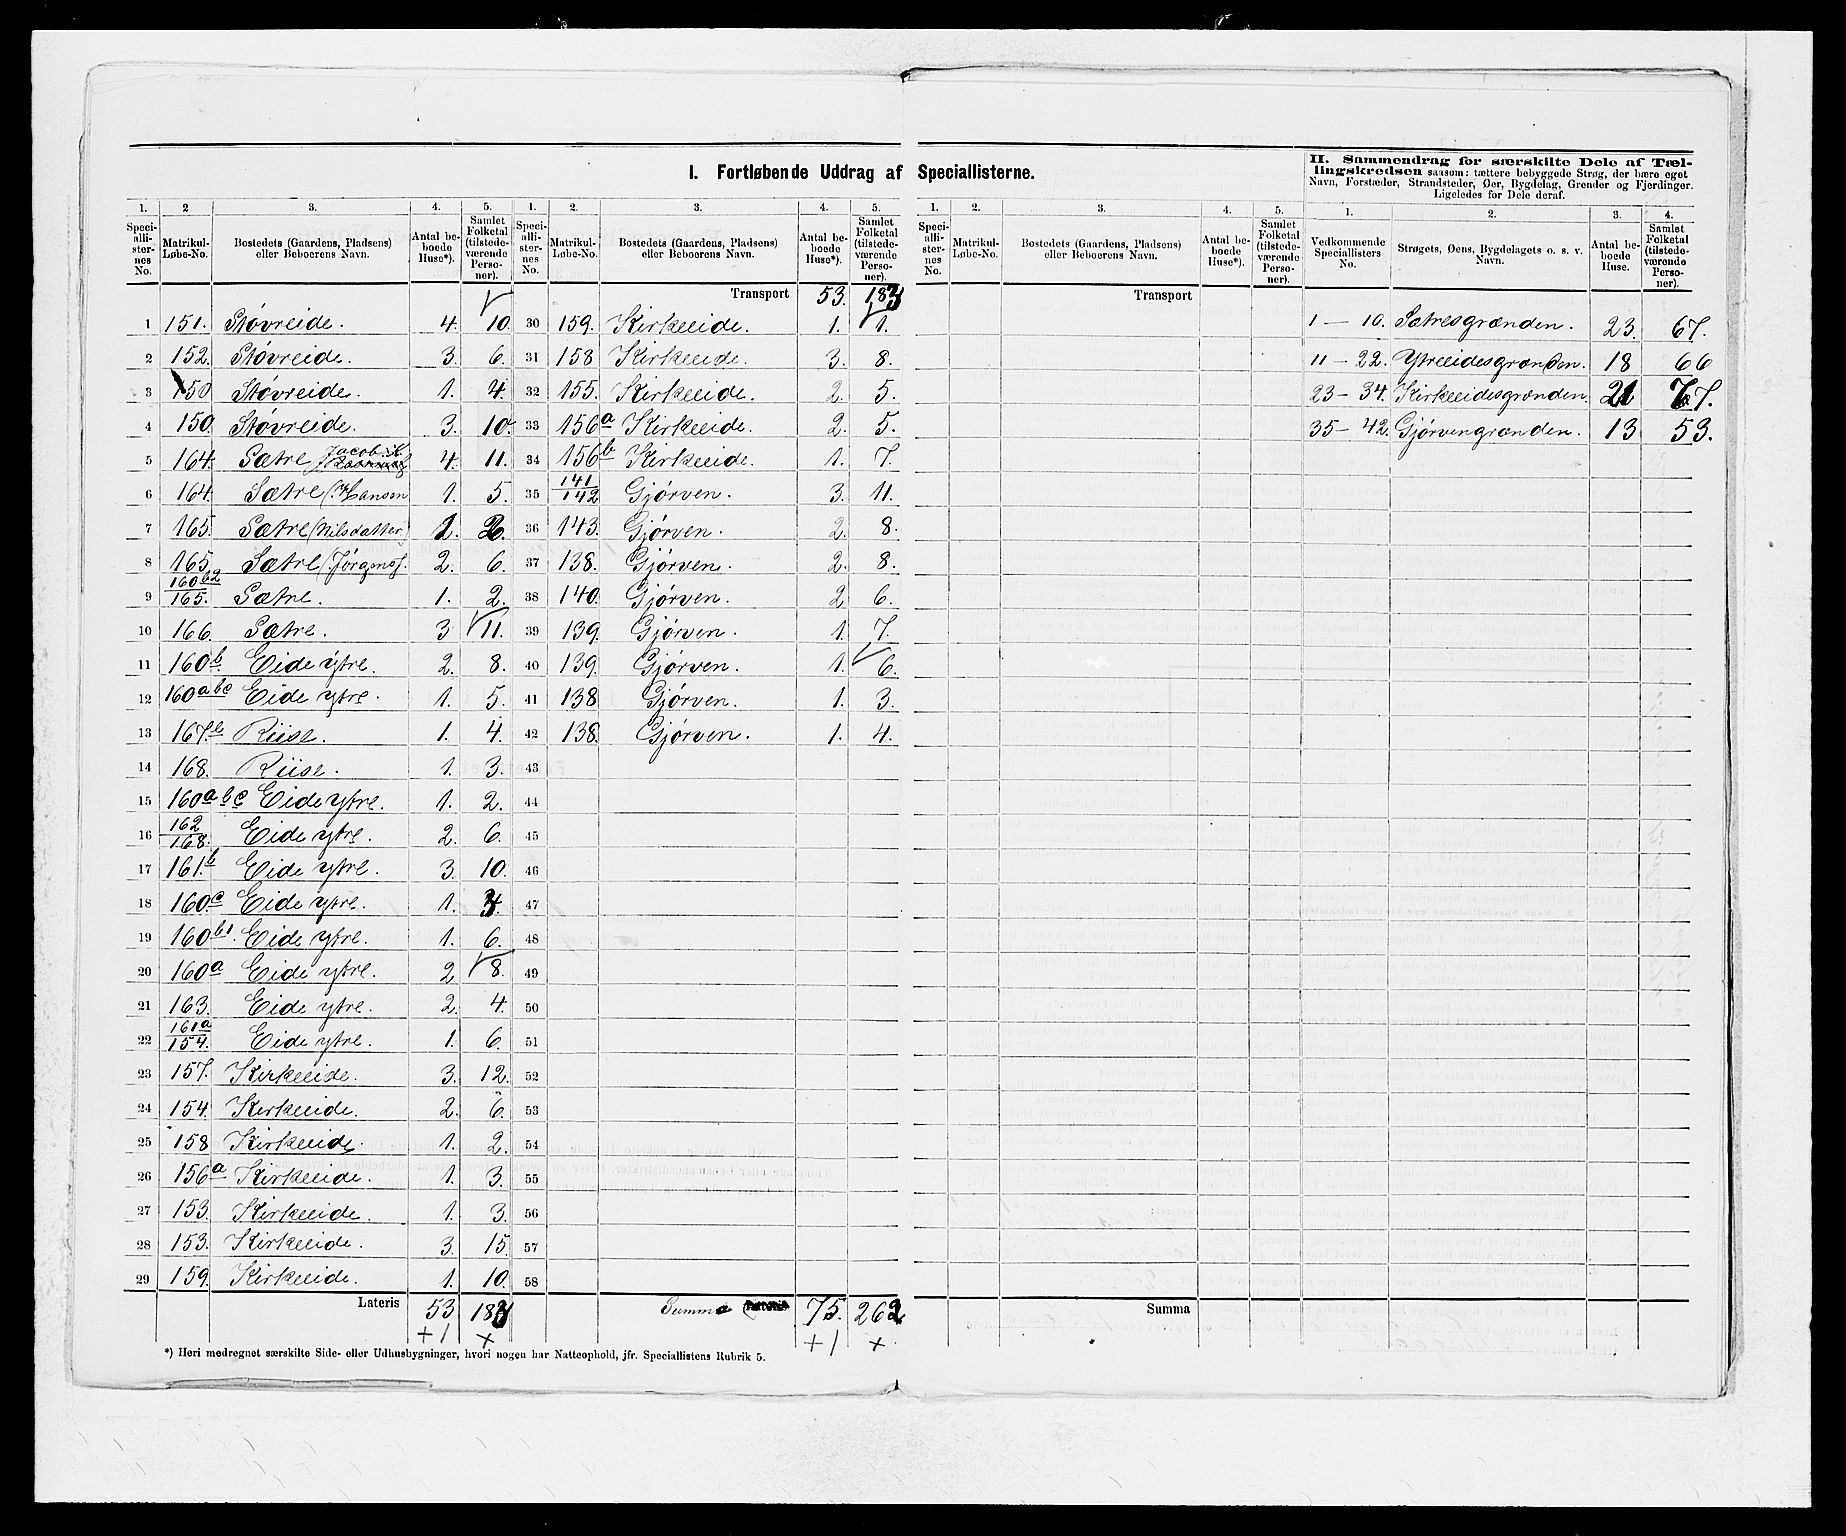 I. Fortløbende Uddrag af Speciallisterne.
II. Sammendrag for særskilte Dele af Tæl-
lingskredsen saasom: tættere bebyggede Strøg, der bære eget
Navn, Forstæder, Strandsteder, Øer, Bygdelag, Grender og Fjerdinger.
Ligeledes for Dele deraf.
1. 2 3. 4. 5. 1. 2. 3. 4. 5. 1. 2. 3. 4. 5. 1. 2. 3. 4.
Speci-alli-ster-nes No. Matrikul-Løbe-No. Bostedets (Gaardens, Pladsens) eller Beboerens Navn. Antal be-boede Huse*). Samlet Folketal (tilstede-værende Perso-ner).
Speci-alli-ster-nes No. Matrikul-Løbe-No. Bostedets (Gaardens, Pladsens) eller Beboerens Navn. Antal be-boede Huse*). Samlet Folketal (tilstede-værende Perso-ner).
Speci-alli-ster-nes No. Matrikul-Løbe-No. Bostedets (Gaardens, Pladsens) eller Beboerens Navn. Antal be-boede Huse*). Samlet Folketal (tilstede-værende Perso-ner).
Vedkommende Speciallisters No. Strøgets, Øens, Bygdelagets o. s. v. Navn. Antal be-boede Huse. Samlet Folketal (tilstede-værende Perso-ner).
1 151. Støvreide. 4. 10.
2 152. Støvreide. 3. 6.
3 150 Støvreide. 1. 4.
4 150. Støvreide. 3. 10.
5 164. Sætre Jacob. 4. 11.
6 164. Sætre (Hansen 1. 5.
7 165. Sætre (Nilsdatter) 1. 2.
8 165. Sætre (Jørgens). 2. 6.
9 160b2/165. Sætre. 1. 2.
10 166. Sætre. 3 11.
11 160b. Eide ytre. 2. 8.
12 160abc Eide ytre. 1. 5.
13 167.b Riise. 1. 4.
14 168. Riise. 1. 3.
15 160abc Eide ytre. 1. 2.
16 162/168. Eide ytre. 2. 6.
17 161.b Eide ytre. 3. 10.
18 160.c Eide ytre. 1.
19 160b1. Eide ytre. 1. 6.
20 160a Eide ytre. 2 8.
21 163. Eide ytre. 2. 4.
22 161a/154. Eide ytre. 1. 6.
23 157. Kirkeeide. 3. 12.
24 154. Kirkeeide. 2. 6.
25 158 Kirkeeide. 1. 2.
26 156a Kirkeeide. 1. 3.
27 153. Kirkeeide. 1. 3.
28 153. Kirkeeide. 3. 15.
29 159. Kirkeeide. 1. 10.
Lateris 53 183
+1 ×
Transport 53. 183
30 159. Kirkeeide. 1. 1.
31 158 Kirkeeide. 3. 8.
32 155. Kirkeeide. 2. 5.
33 156a Kirkeeide. 2. 5.
34 156b Kirkeeide. 1. 7.
35 141/142 Gjörven. 3. 11.
36 143. Gjörven. 2. 8.
37 138. Gjörven. 2. 8.
38 140. Gjörven. 2 6.
39 139. Gjörven. 1. 7.
40 139. Gjörven. 1. 6.
41 138 Gjörven. 1. 3.
42 138. Gjörven. 1. 4.
43
44
45
46
47
48
49
50
51
52
53
54
55
56
57
58
Summa 75. 262
+1 ×
Transport
Summa
1 — 10. Sætresgrænden. 23. 67.
11 — 22. Ytreeidesgrænden. 18 66
23 — 34. Kirkeeidesgrænden. 21 77.
35 — 42. Gjörvengrænden. 13 53.
*) Heri medregnet særskilte Side- eller Udhusbygninger, hvori nogen har Natteophold, jfr. Speciallistens Rubrik 5.